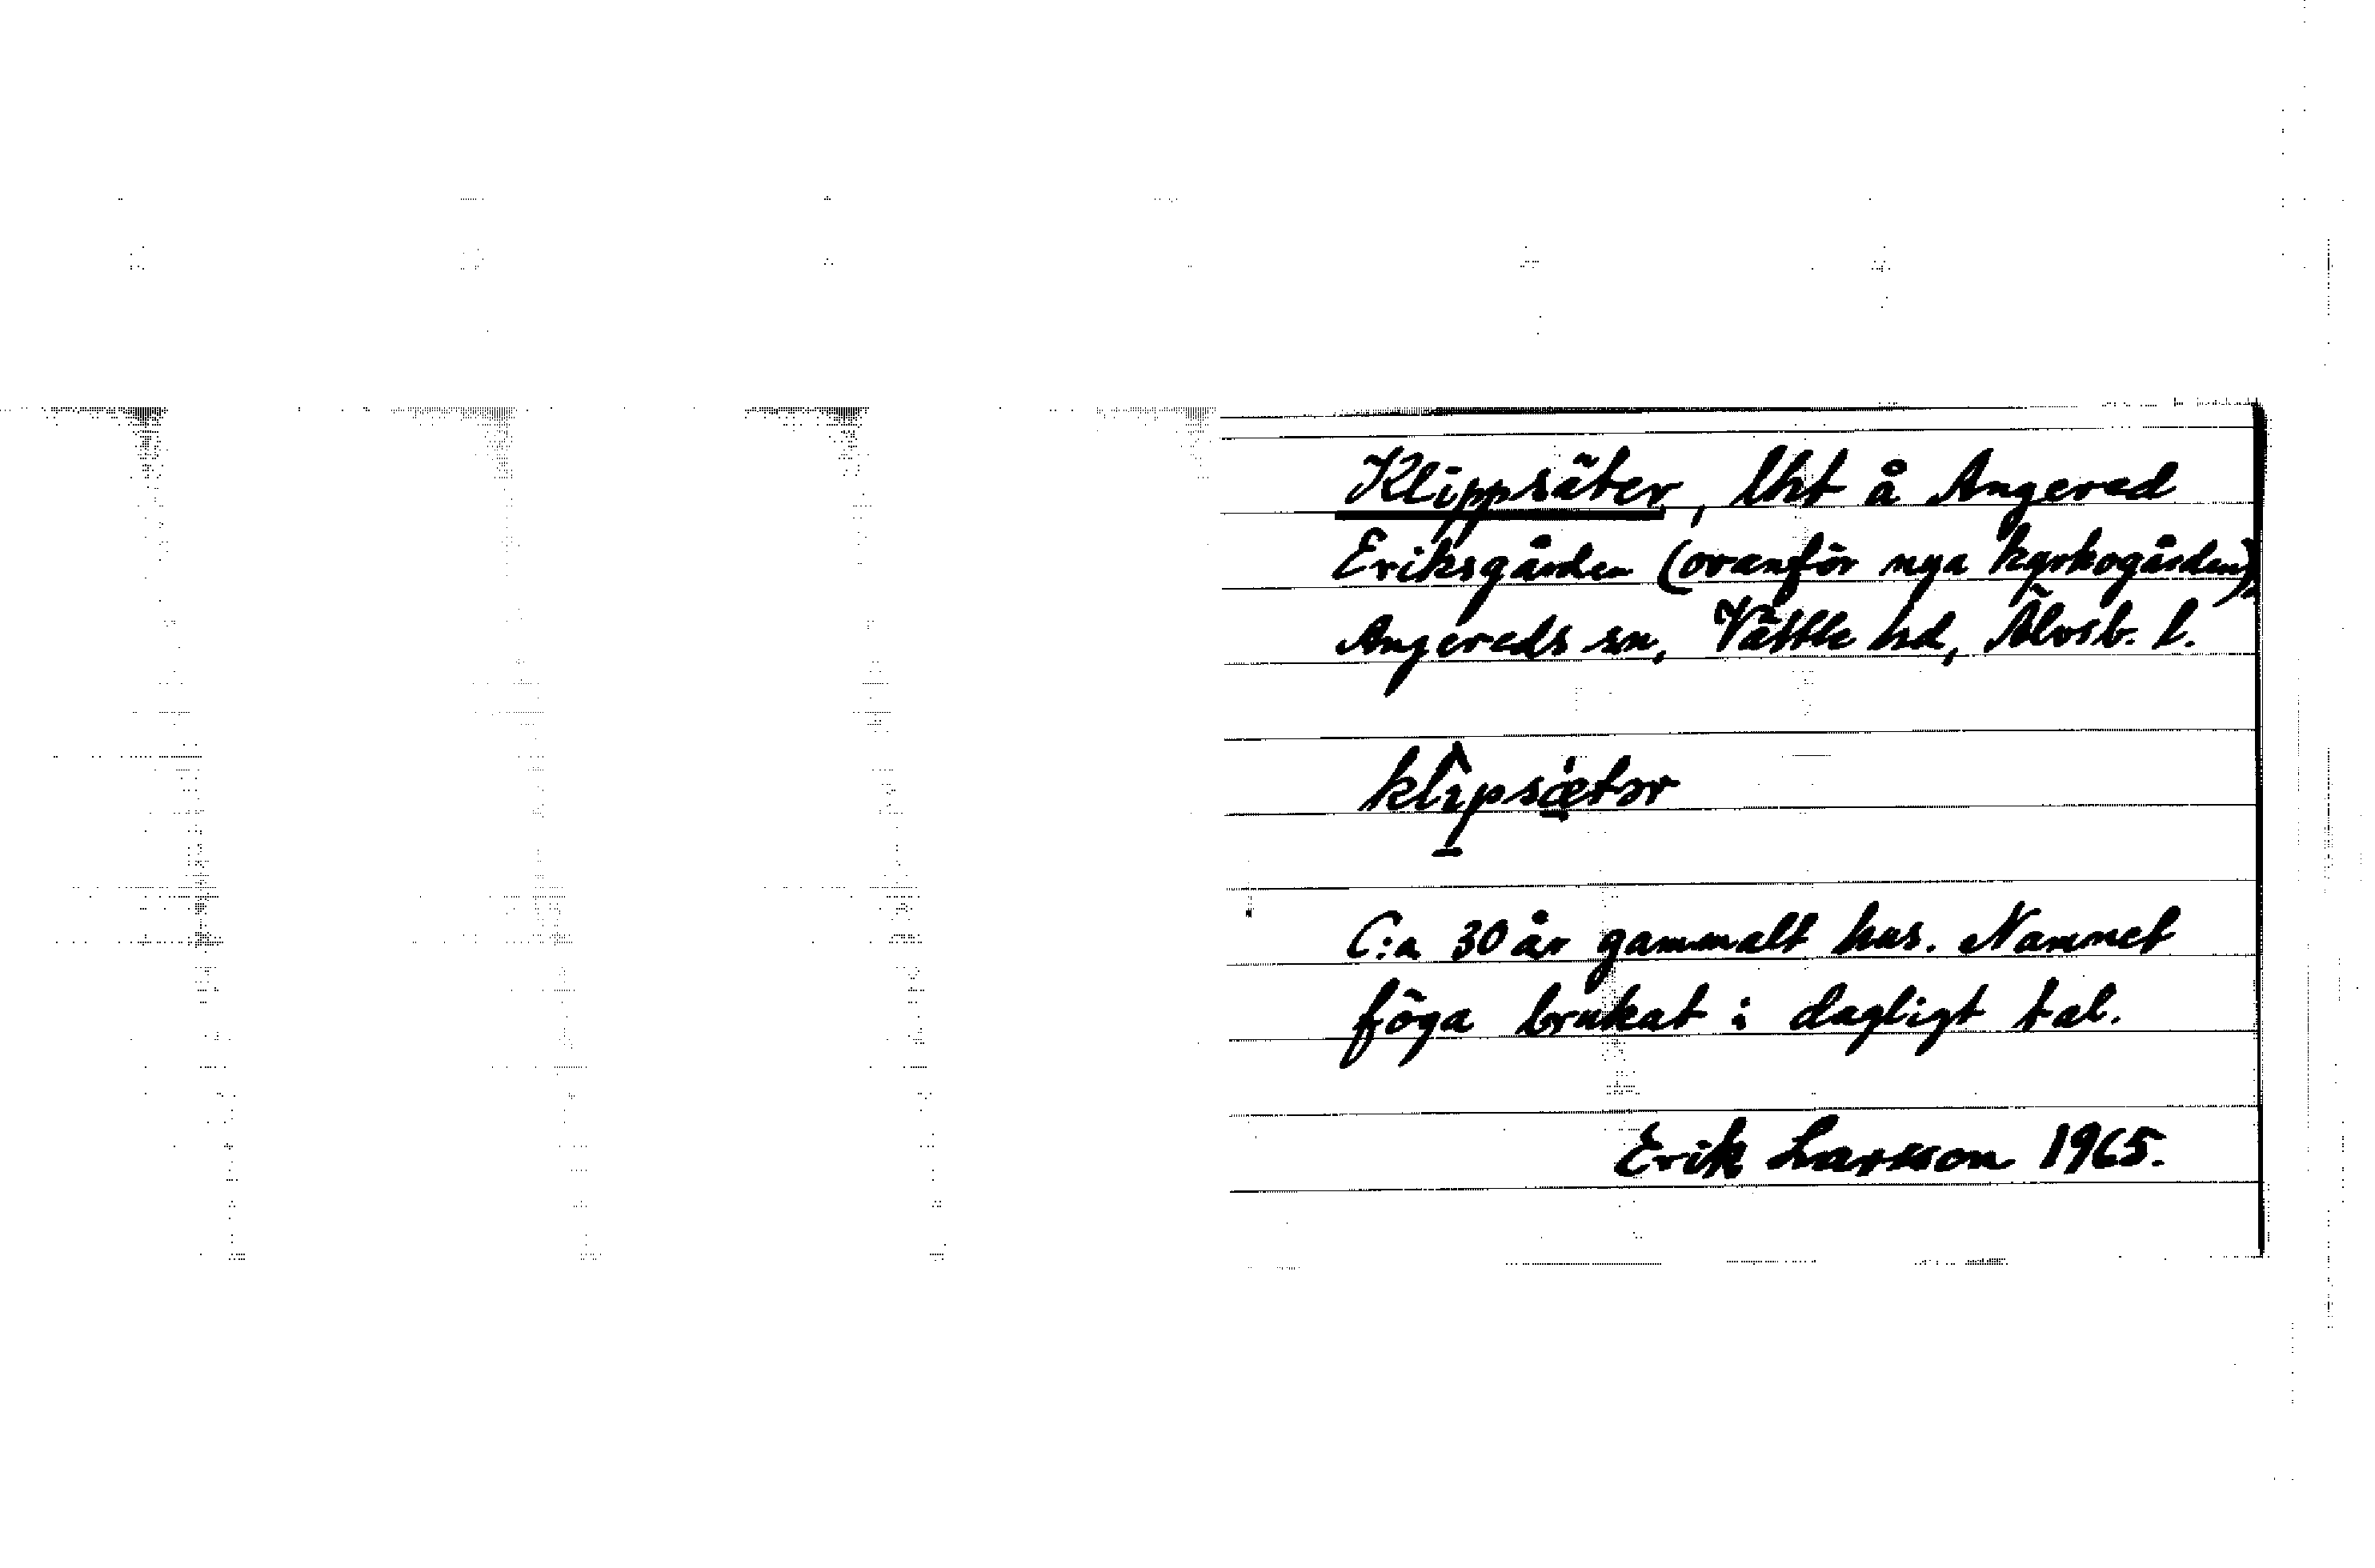 Klippsäter, lht å Angered
Eriksgården (ovanför nya kyrkogården),
Angereds sn, Vättle hd, Älvsb. l.
C:a 30 år gammalt hus. Namnet
föga brukat i dagligt tal.
Erik Larsson 1965.